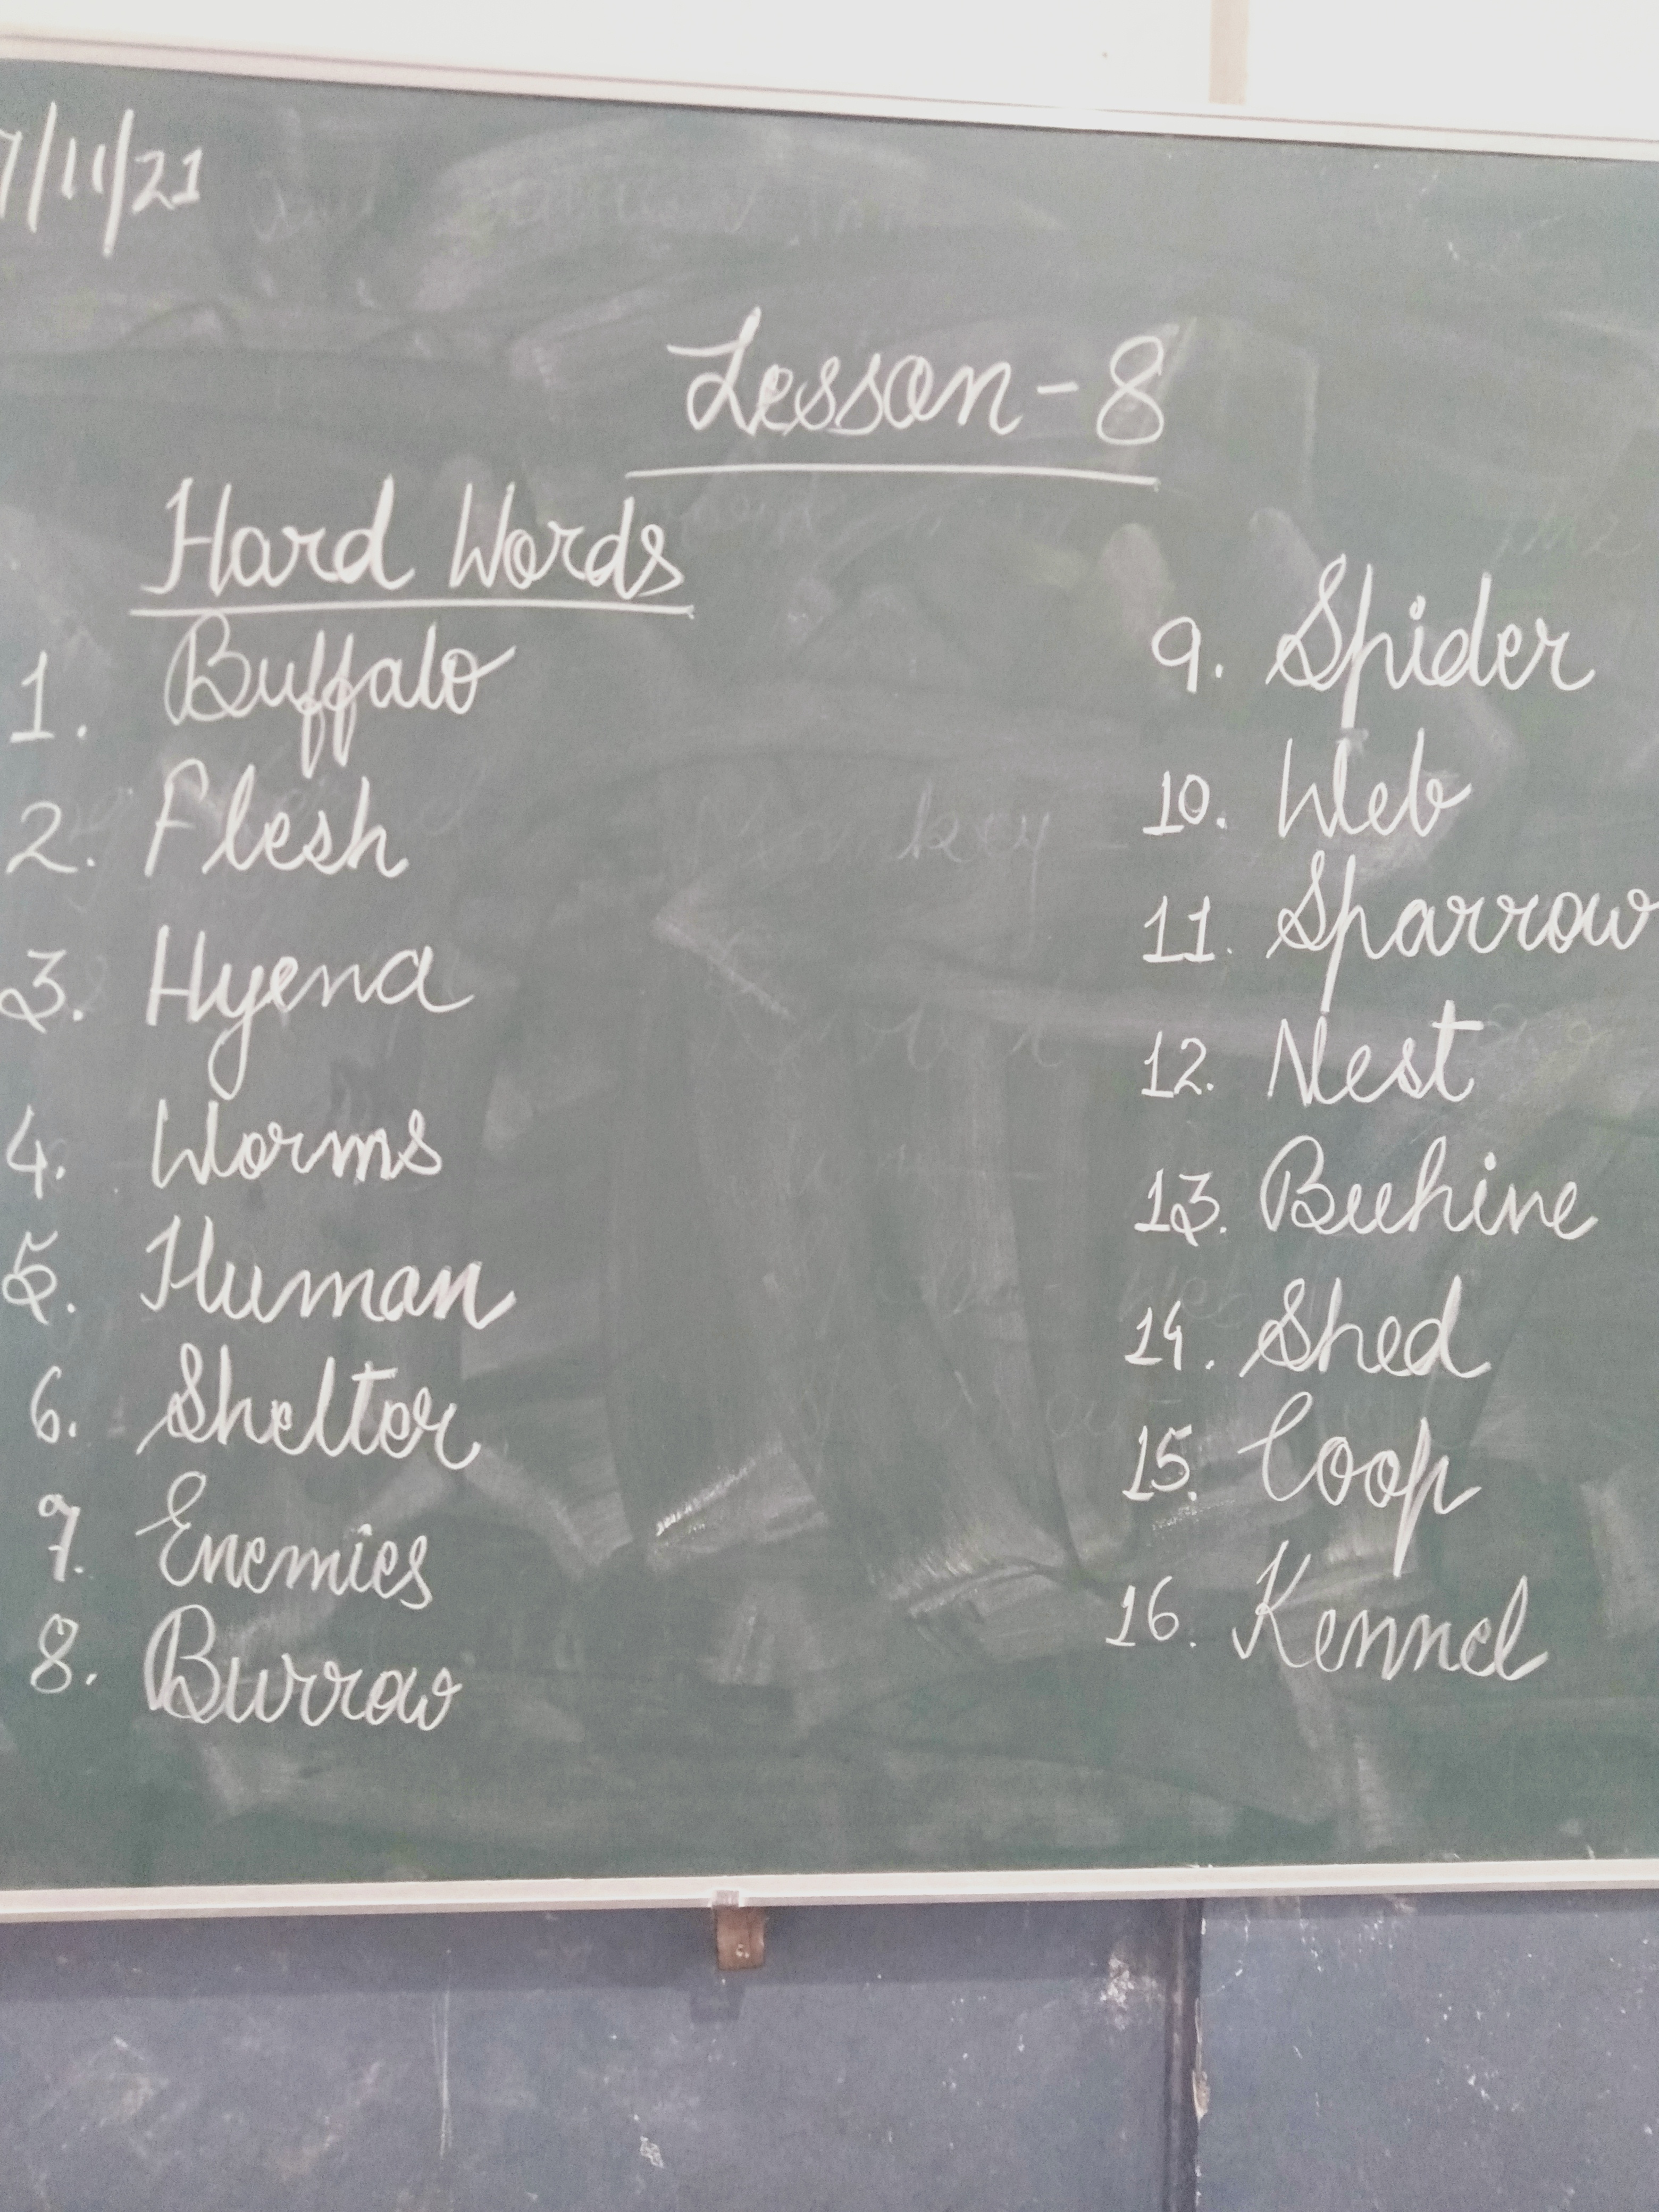 7/11/21
Lesson-8
Hard Words
1. Buffalo
2. Flesh
3. Hyena
4. Worms
5. Human
6. Shelter
7. Enemies
8. Burrow
9. Spider
10. Web
11. Sparrow
12. Nest
13. Beehive
14. Shed
15. Coop
16. Kennel